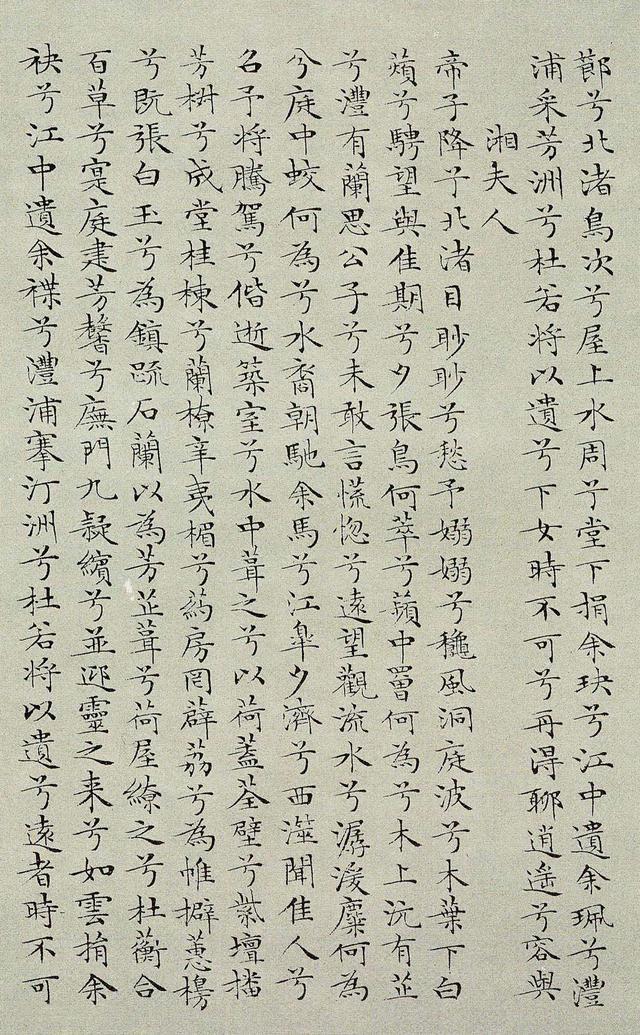 節兮北渚鳥次兮屋上水周兮堂下捐余玦兮江中遺余珮兮澧
浦采芳洲兮杜若將以遺兮下女時不可兮再得聊逍遙兮容與
湘夫人
帝子降兮北渚目眇眇兮愁予嫋嫋兮龝風洞庭波兮木葉下白
薠兮騁望與佳期兮夕張鳥何萃兮蘋中罾何為兮木上沅有芷
兮澧有蘭思公子兮未敢言慌惚兮遠望觀流水兮潺湲麋何為
兮庭中蛟何為兮水裔朝馳余馬兮江皋夕濟兮西澨聞佳人兮
名予將騰駕兮偕逝築室兮水中葺之兮以荷蓋荃壁兮紫壇播
芳椒兮成堂桂棟兮蘭橑辛夷楣兮葯房罔薜荔兮為帷擗蕙櫋
兮既張白玉兮為鎮疏石蘭以為芳芷葺兮荷屋繚之兮杜蘅合
百草兮寔庭建芳馨兮廡門九疑繽兮並迎靈之来兮如雲捐余
袂兮江中遺余褋兮澧浦搴汀洲兮杜若將以遺兮遠者時不可